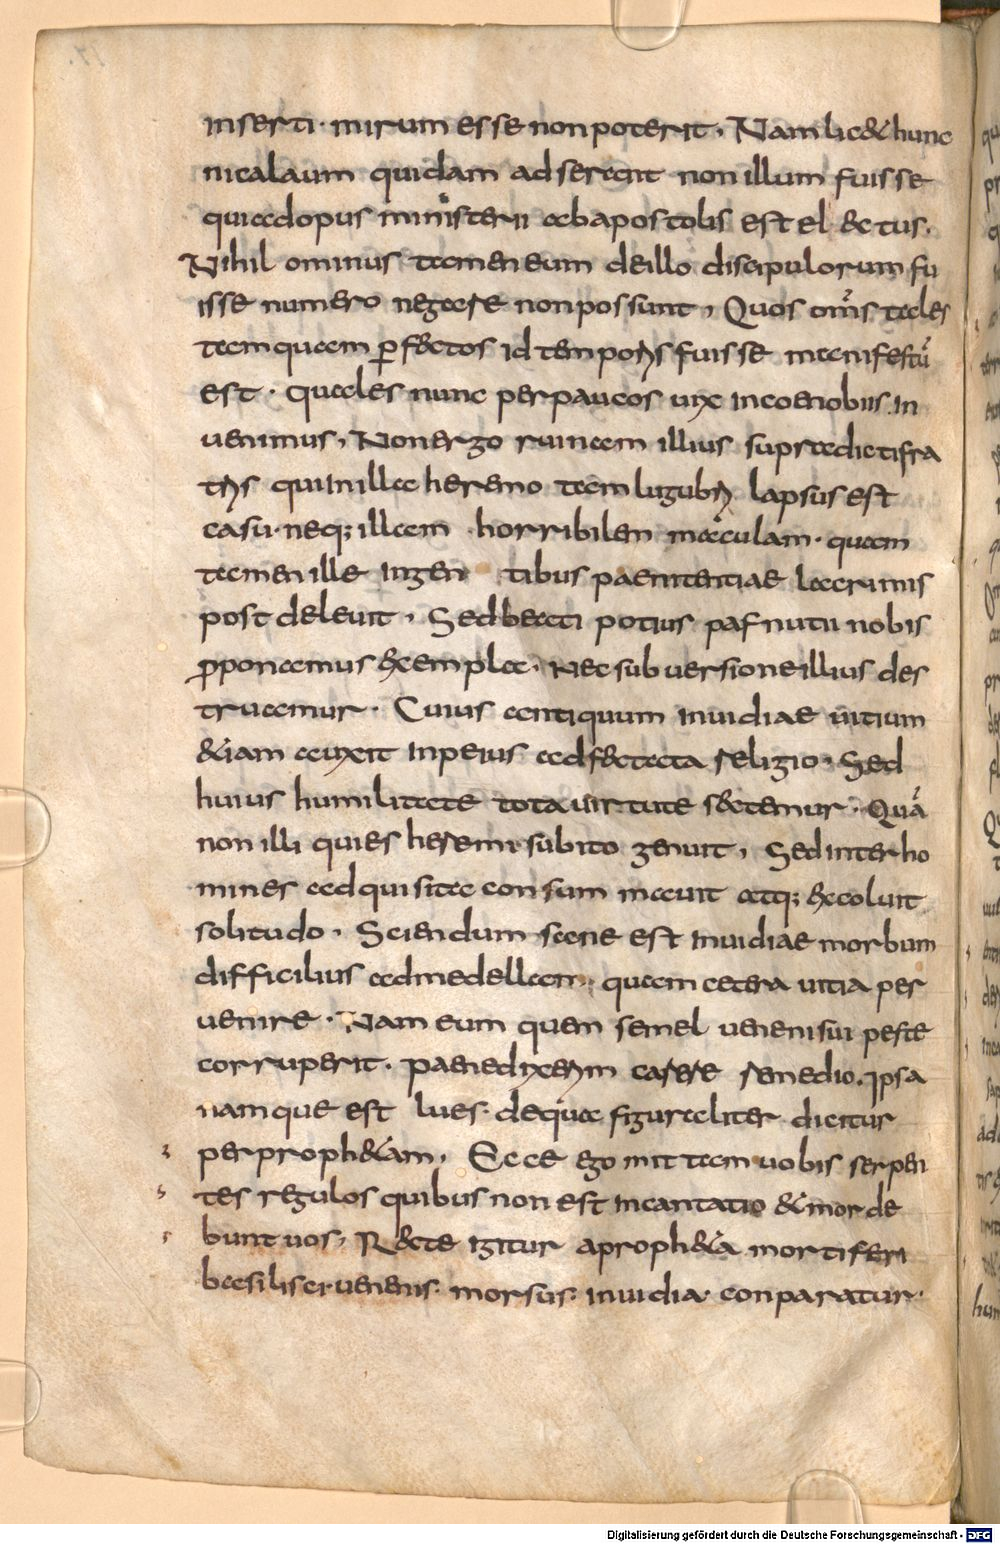 inserti· mirum esse non poterit, Nam lic& hunc
nicalaum quidam adserant non illum fuisse
qui ad opus ministerii ab apostolis est el&ctus.
Nihil ominus tamen eum de illo discipulorum fu
isse numero negare non possunt, Quos om̅s tales
tamquam ꝑf&ctos id temporis fuisse manifestū
est · quales nunc perpaucos vix in coenobiis in
venimus, Non ergo ruinam illius supradicti fra
tris qui in illa heremo tam lugubri lapsus est
casu· neq; illam horribilem maculam· quam
tamen ille ingen tibus paenitentiae lacrimis
post delevit, Sed beati potius pafnutii nobis
ꝓponamus &xempla, Nec subversione illius des
truamur· Cuius antiquum invidiae vitium
&iam auxit in peius adf&ctata religio, Sed
huius humilitate tota virtute s&ctemur· Quā
non illi quies heremi subito genuit, Sed inter ho
mines adquisita consummavit atq; &xcoluit
solitudo, Sciendum sane est invidiae morbum
difficilius ad medellam, quam cetera vitia per
venire· Nam eum quem semel veneni sui peste
corruperit, paene dixerim carere remedio. Ipsa
namque est lues· de qua figuraliter dicitur
per proph&am, Ecce ego mittam vobis serpen
tes regulos quibus non est incantatio & morde
bunt vos, R&cte igitur a proph&a mortiferi
basilisci venenis· morsus· invidia· conparatur·
Digitalisierung gefördert durch die Deutsche Forschungsgemeinschaft - DFG